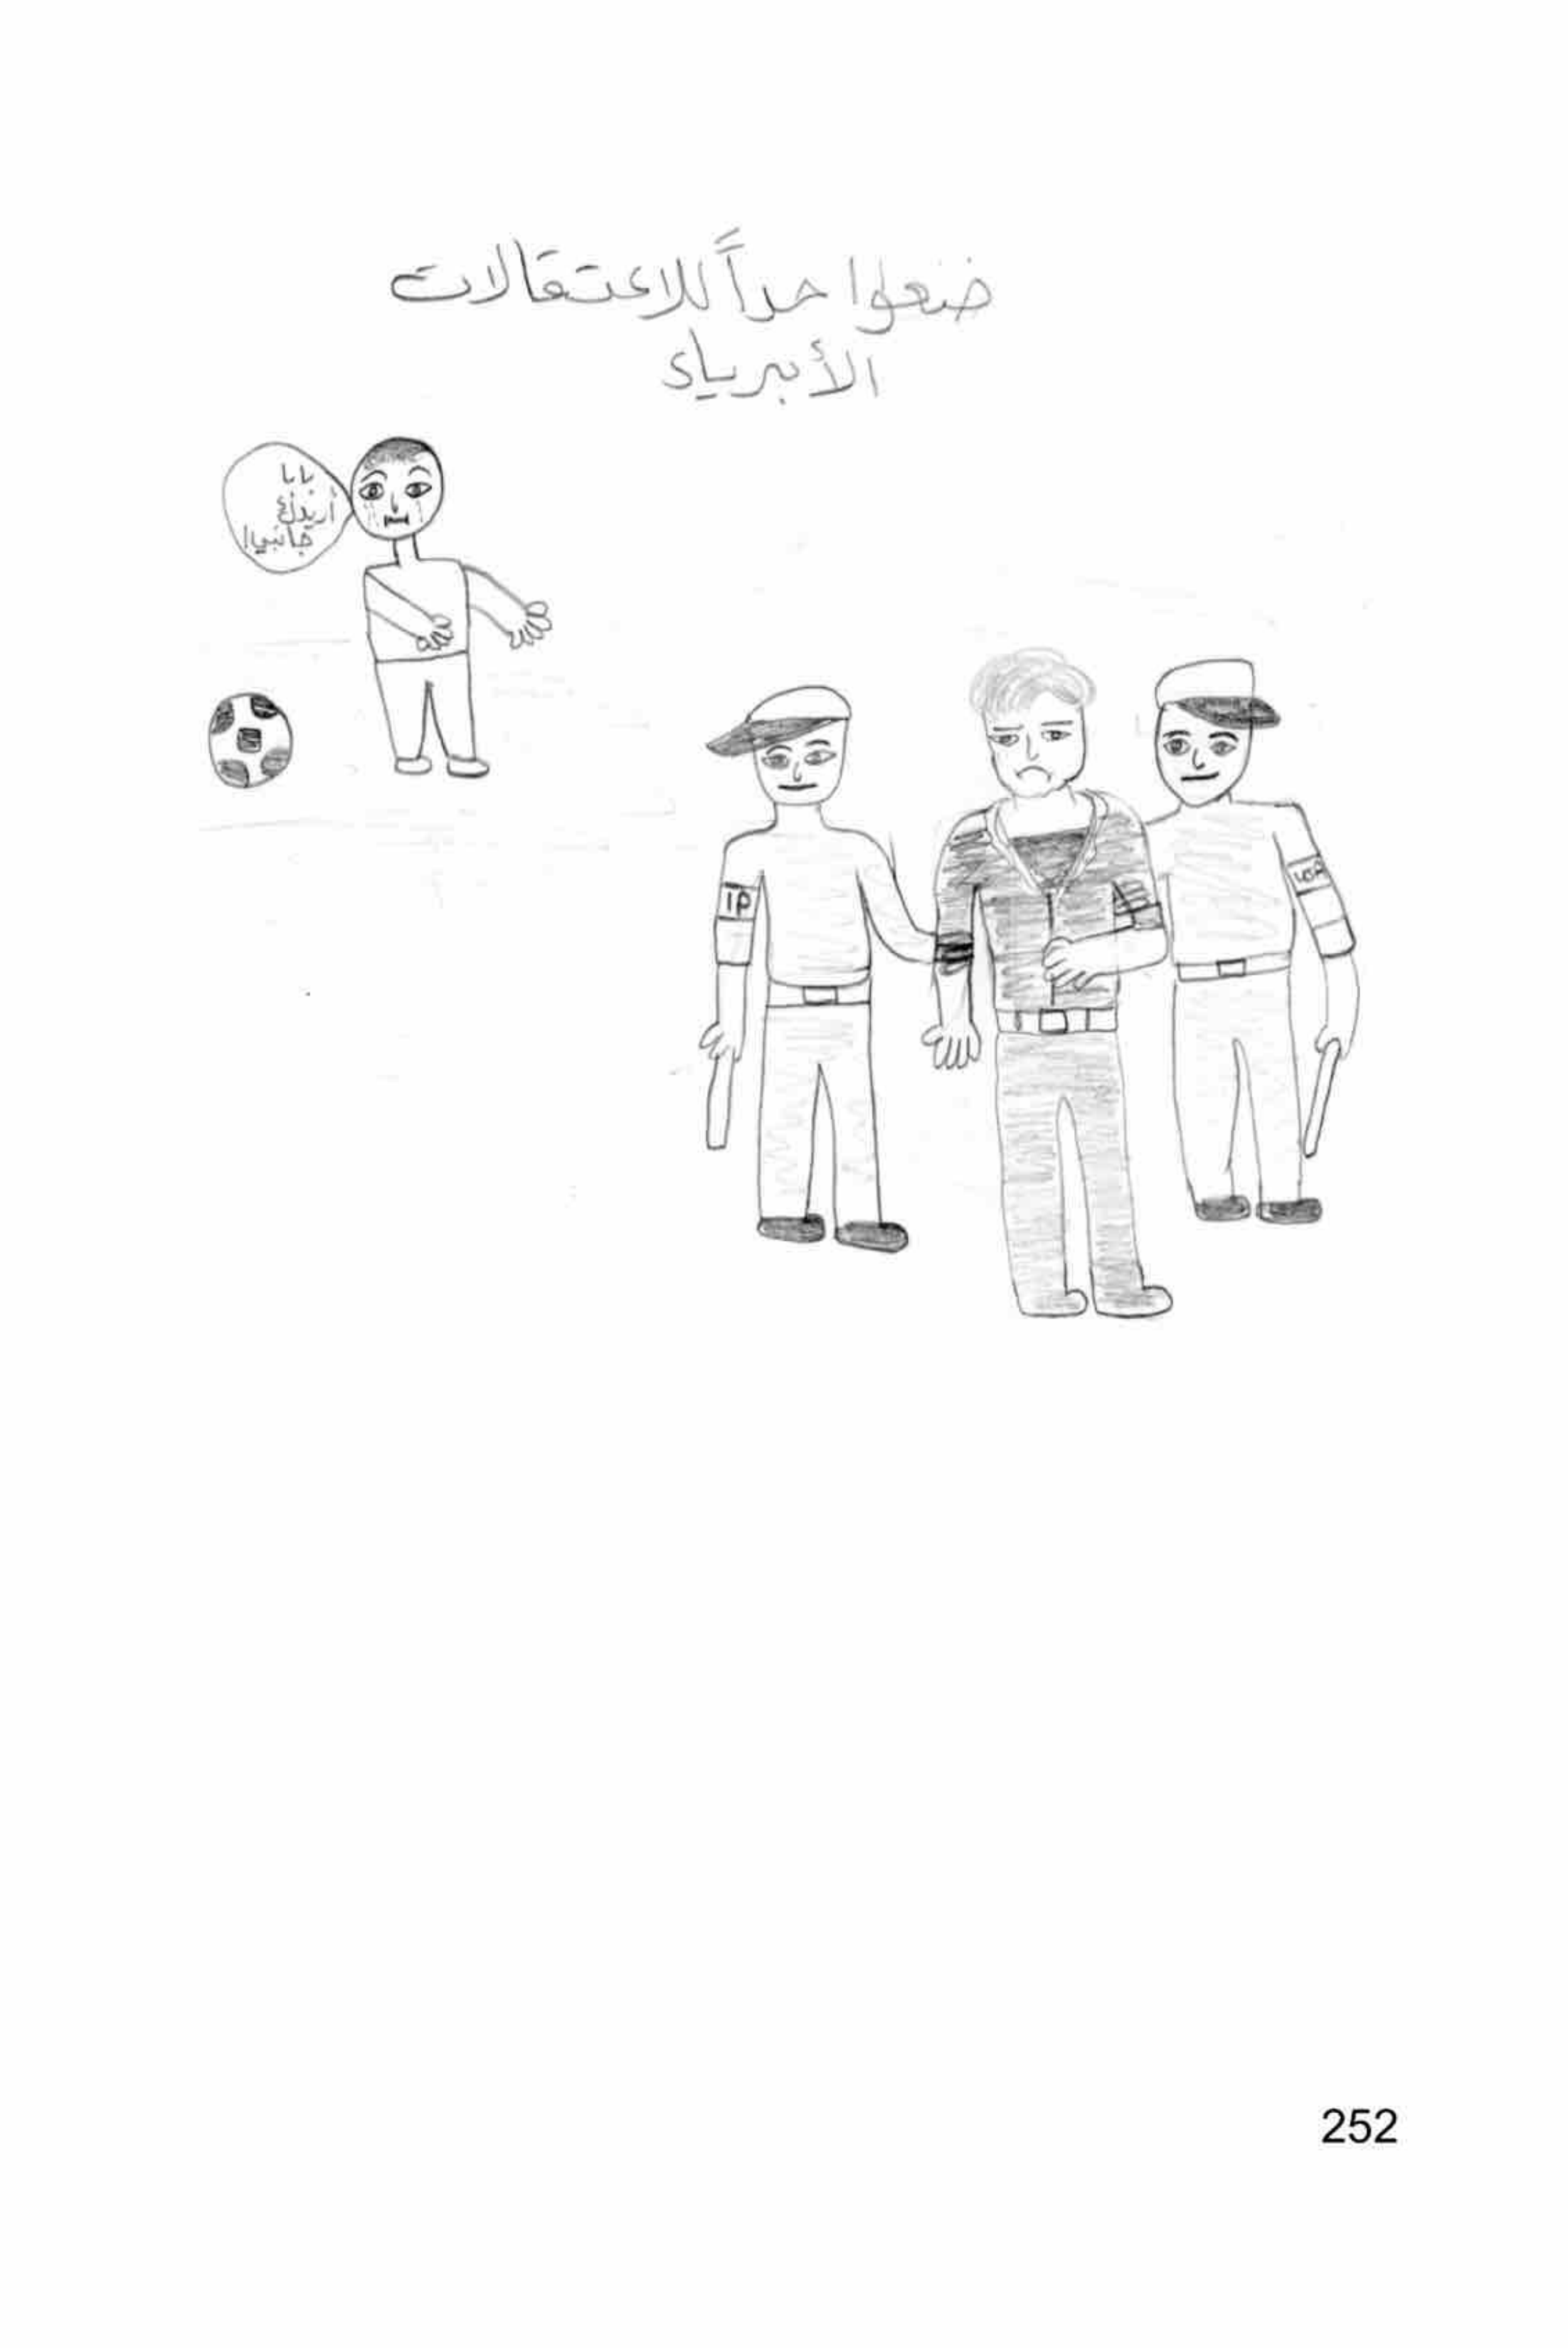 ضعوا حداً للاعتقالات
الأبرياء
بابا
أريدك
جانبي!
IP
252